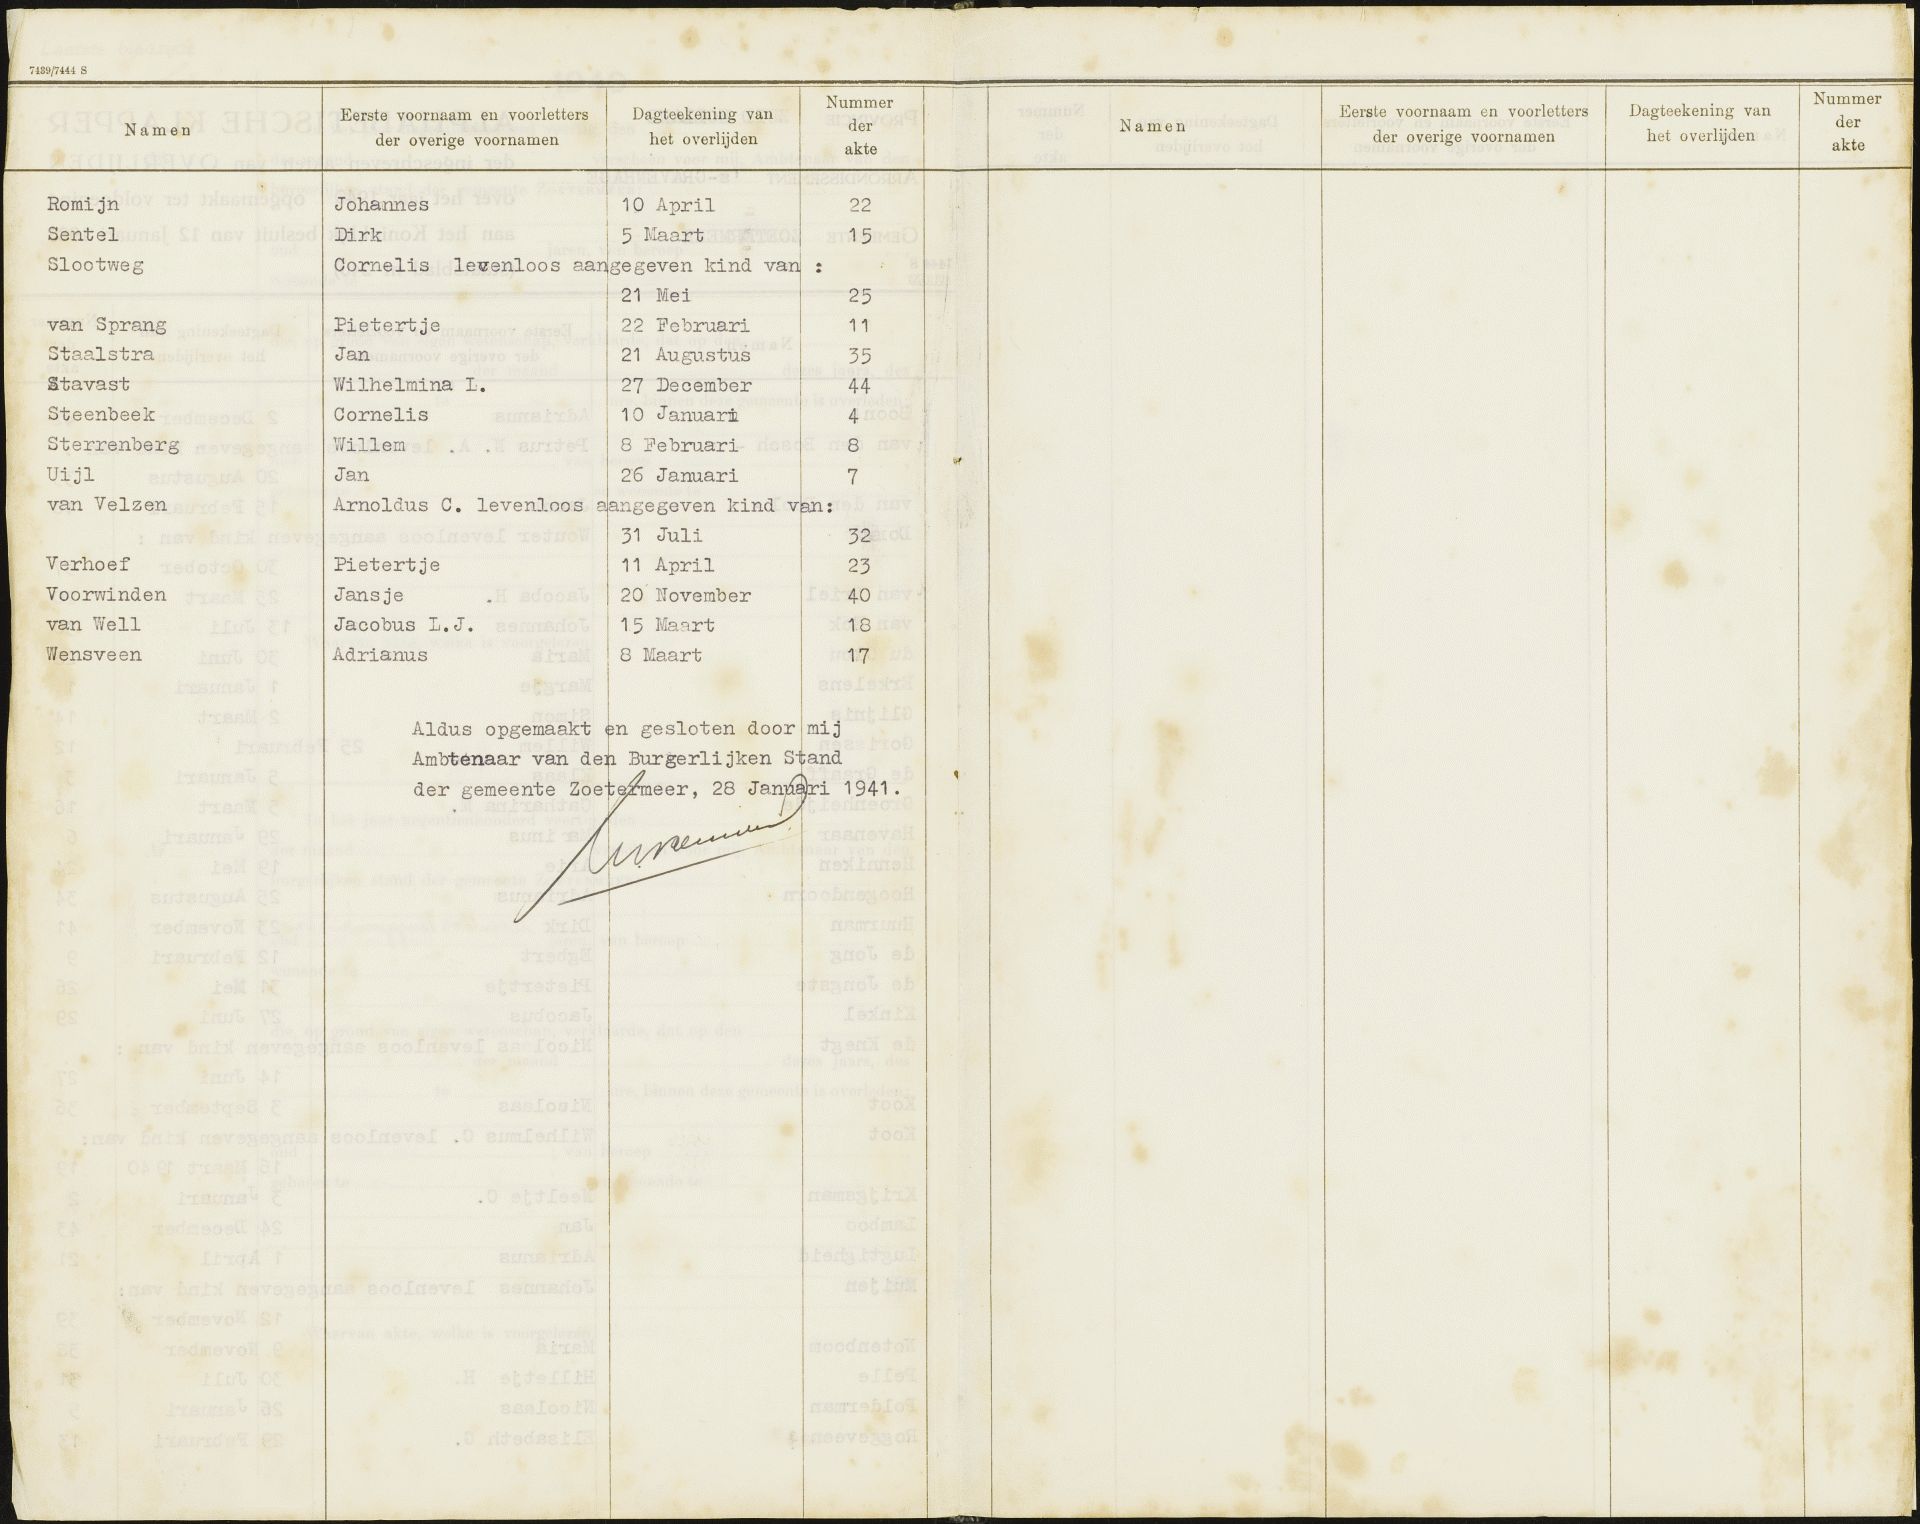 7439/7444 S
Namen
Eerste voornaam en voorletters
der overige voornamen
Dagteekening van
het overlijden
Nummer
der
akte
Namen
Eerste voornaam en voorletters
der overige voornamen
Dagteekening van
het overlijden
Nummer
der
akte
Romijn Johannes 10 April 22
Sentel Dirk 5 Maart 15
Slootweg Cornelis levenloos aangegeven kind van :
21 Mei 25
van Sprang Pietertje 22 Februari 11
Staalstra Jan 21 Augustus 35
Stavast Wilhelmina L. 27 December 44
Steenbeek Cornelis 10 Januari 4
Sterrenberg Willem 8 Februari 8
Uijl Jan 26 Januari 7
van Velzen Arnoldus C. levenloos aangegeven kind van:
31 Juli 32
Verhoef Pietertje 11 April 23
Voorwinden Jansje 20 November 40
van Well Jacobus L.J. 15 Maart 18
Wensveen Adrianus 8 Maart 17
Aldus opgemaakt en gesloten door mij
Ambtenaar van den Burgerlijken Stand
der gemeente Zoetermeer, 28 Januari 1941.